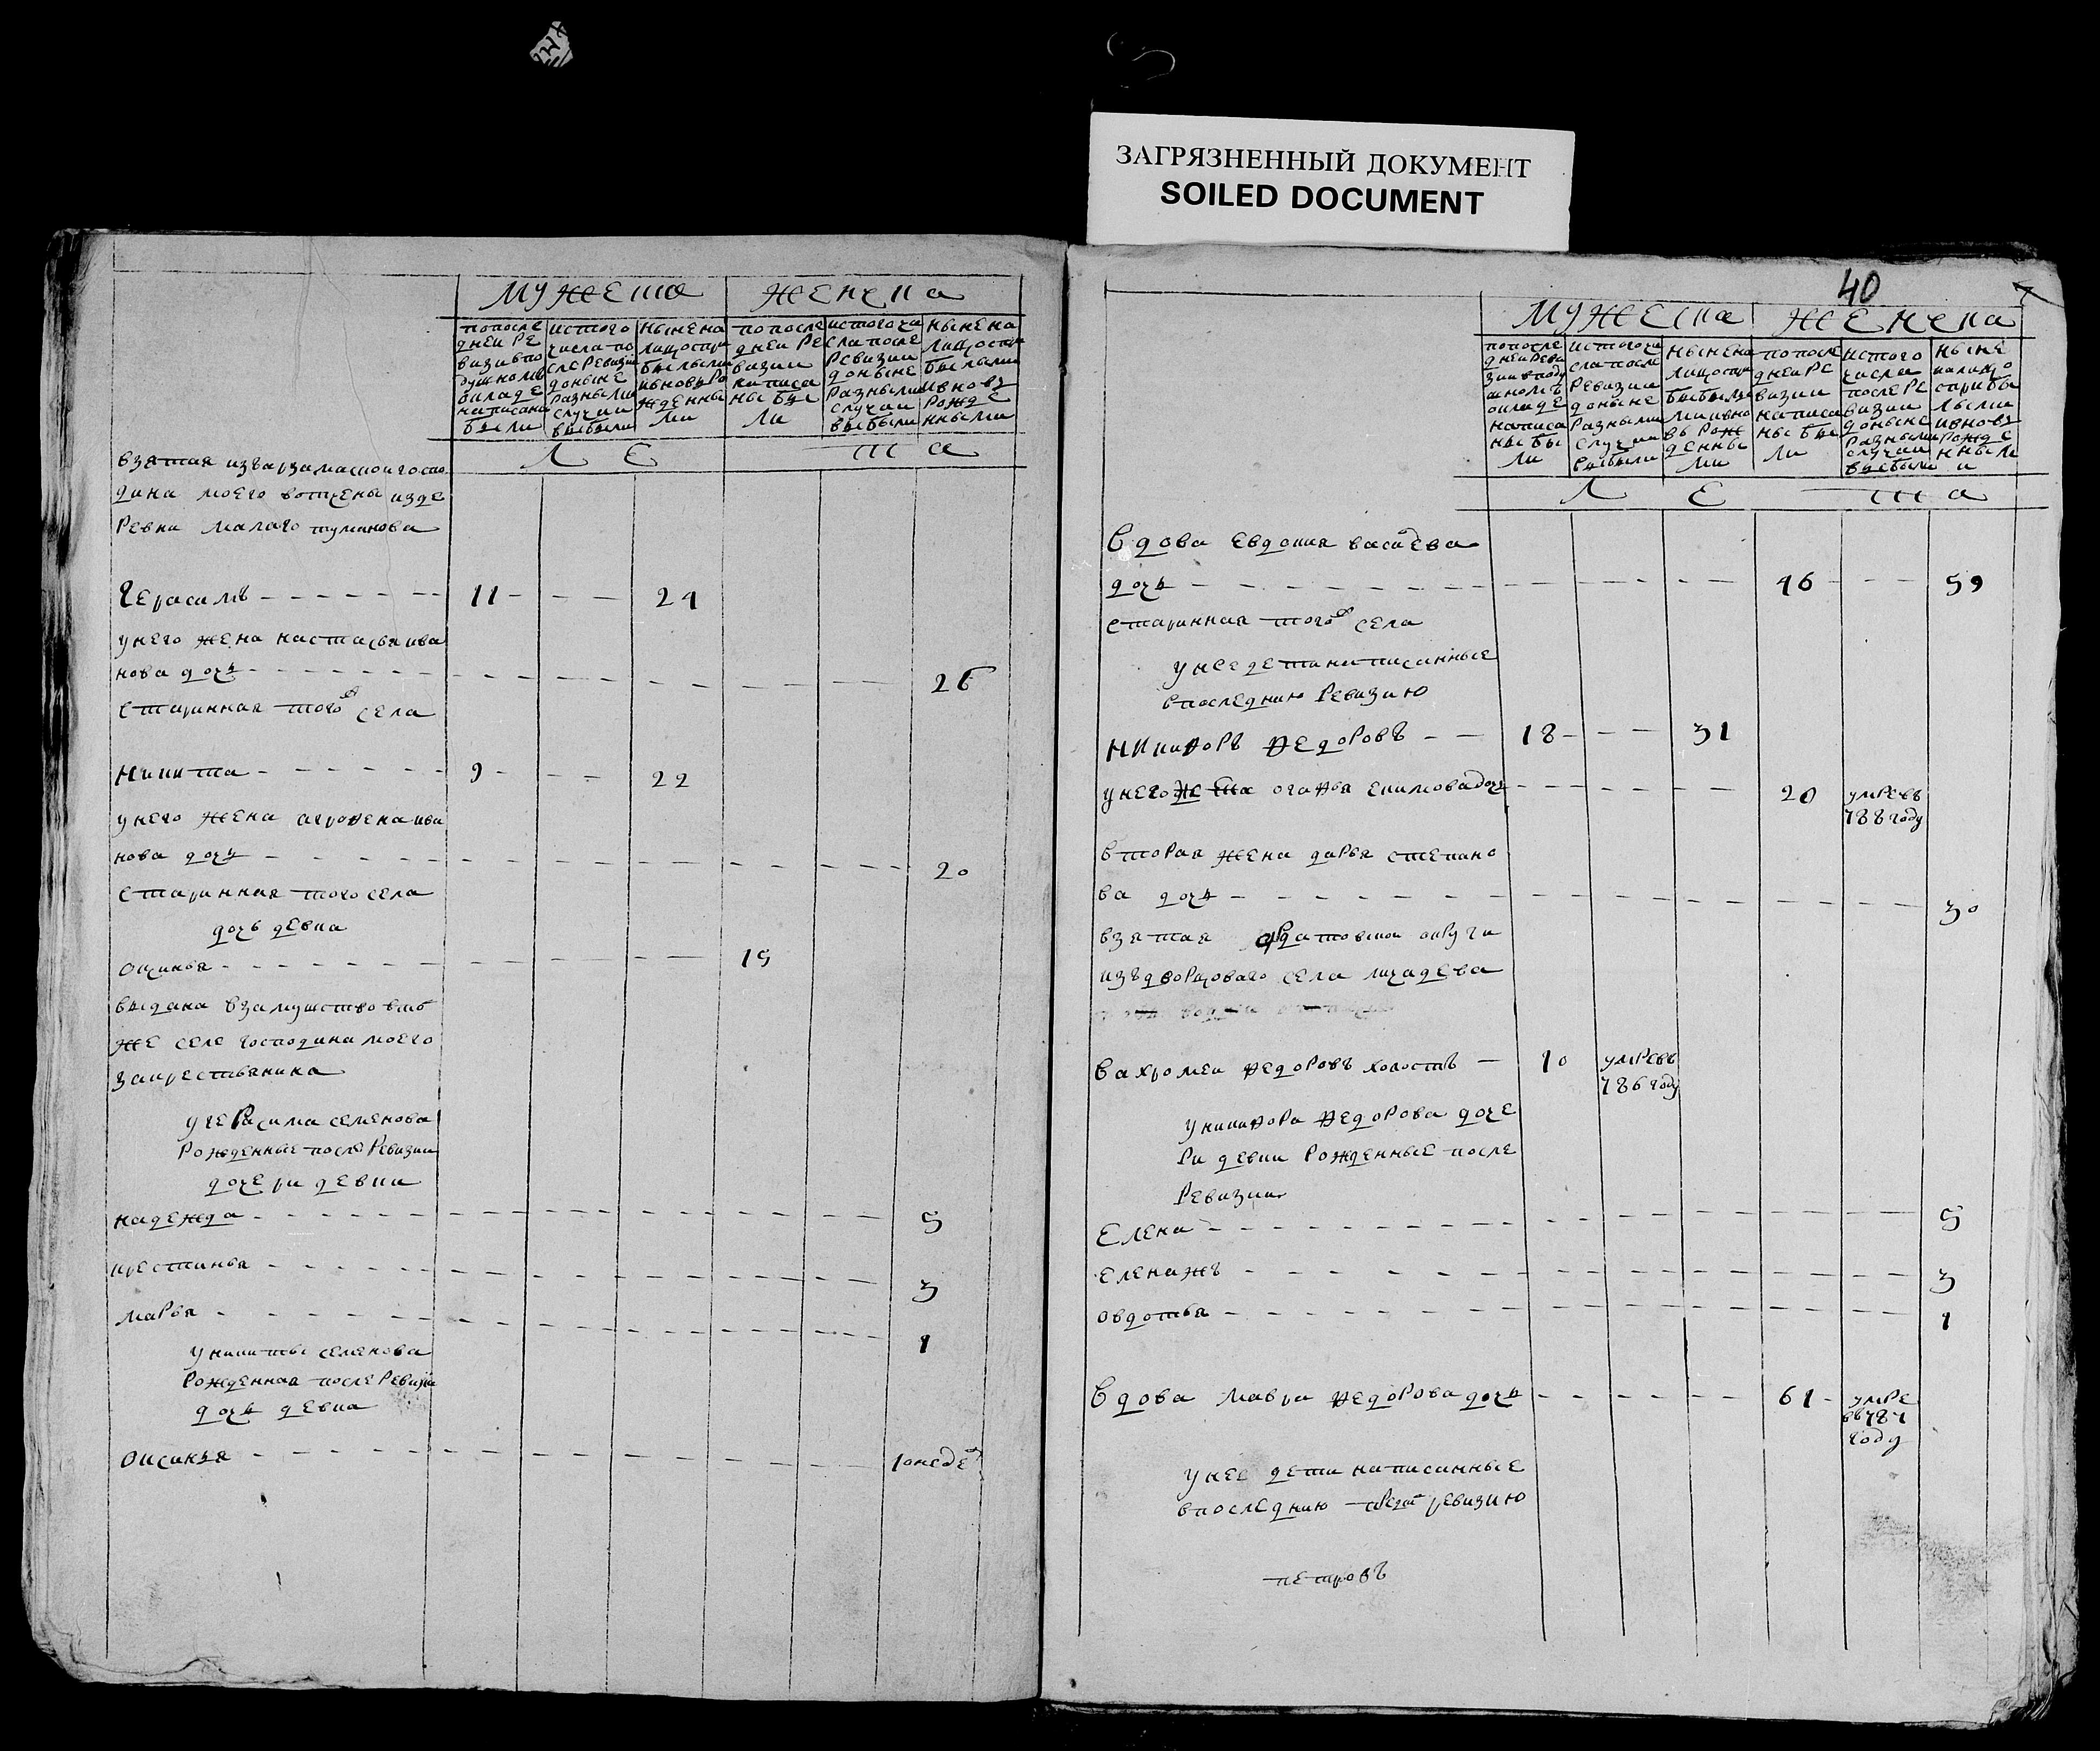 ЗАГРЯЗНЕННЫЙ ДОКУМЕНТ
SOILED DOCUMENT
мужеска женска
попосле
дней ре
визии впо
душномъ
окладе
написаны
были
истого
числа по
сле ревизии
доныне
разными
случаи
выбыли
ныне на
лицо спри
былыми
ивновь ро
жденны
ми
попосле
дней ре
визии
написа
ны бы
ли
истого чи
сла после
ревизии
доныне
разными
случаи
выбыли
ныне на
лицо спри
былыми
ивновь
рожде
нными
ле та
взятая изъ арзамаской госпо
дина моего вотчены изде
ревни малаго туманова
Герасимъ 11 24
унего жена настасья ива
нова дочь 26
старинная того села
никита 9 22
унего жена агрофена ива
нова дочь 20
старинная того села
дочь девка
оксинья 15
выдана взамужство втом
же селе господина моего
закрестьянина
угерасима семенова
рожденные после ревизии
дочери девки
надежда 5
крестинья 3
марья 1
уникиты семенова
рожденная после ревизии
дочь девка
оксинья 10 недел
40
мужеска женска
попосле
дней реви
зии вподу
шномъ
окладе
написа
ны бы
ли
истого чи
сла после
ревизии
доныне
разными
случаи
выбыли
ныне на
лицо спри
былы
ми ивно
вь рож
денны
ми
попосле
дней ре
визии
написа
ны бы
ли
истого
числа
после ре
визии
доныне
разными
случаи
выбыли
ныне
налицо
сприбы
лыми
ивновь
рожде
нными
ле та
вдова евдокия васильева
дочь 46 59
старинная того села
унее дети написанные
впоследнию ревизию
никифоръ федоровъ 18 31
унего жена огафья екимова дочь 20 умре въ
788 году
вторая жена дарья степано
ва дочь 30
взятая ардатовской округи
изъ дворцоваго села личадева
вахромеи федоровъ холостъ 10 умре въ
786 году
уникифора федорова доче
ри девки рожденные после
ревизии
елена 5
елена жъ 3
овдотья 1
вдова мавра федорова дочь 61 умре
въ 787
году
унее дети написанные
впоследнию пред ревизию
петровъ